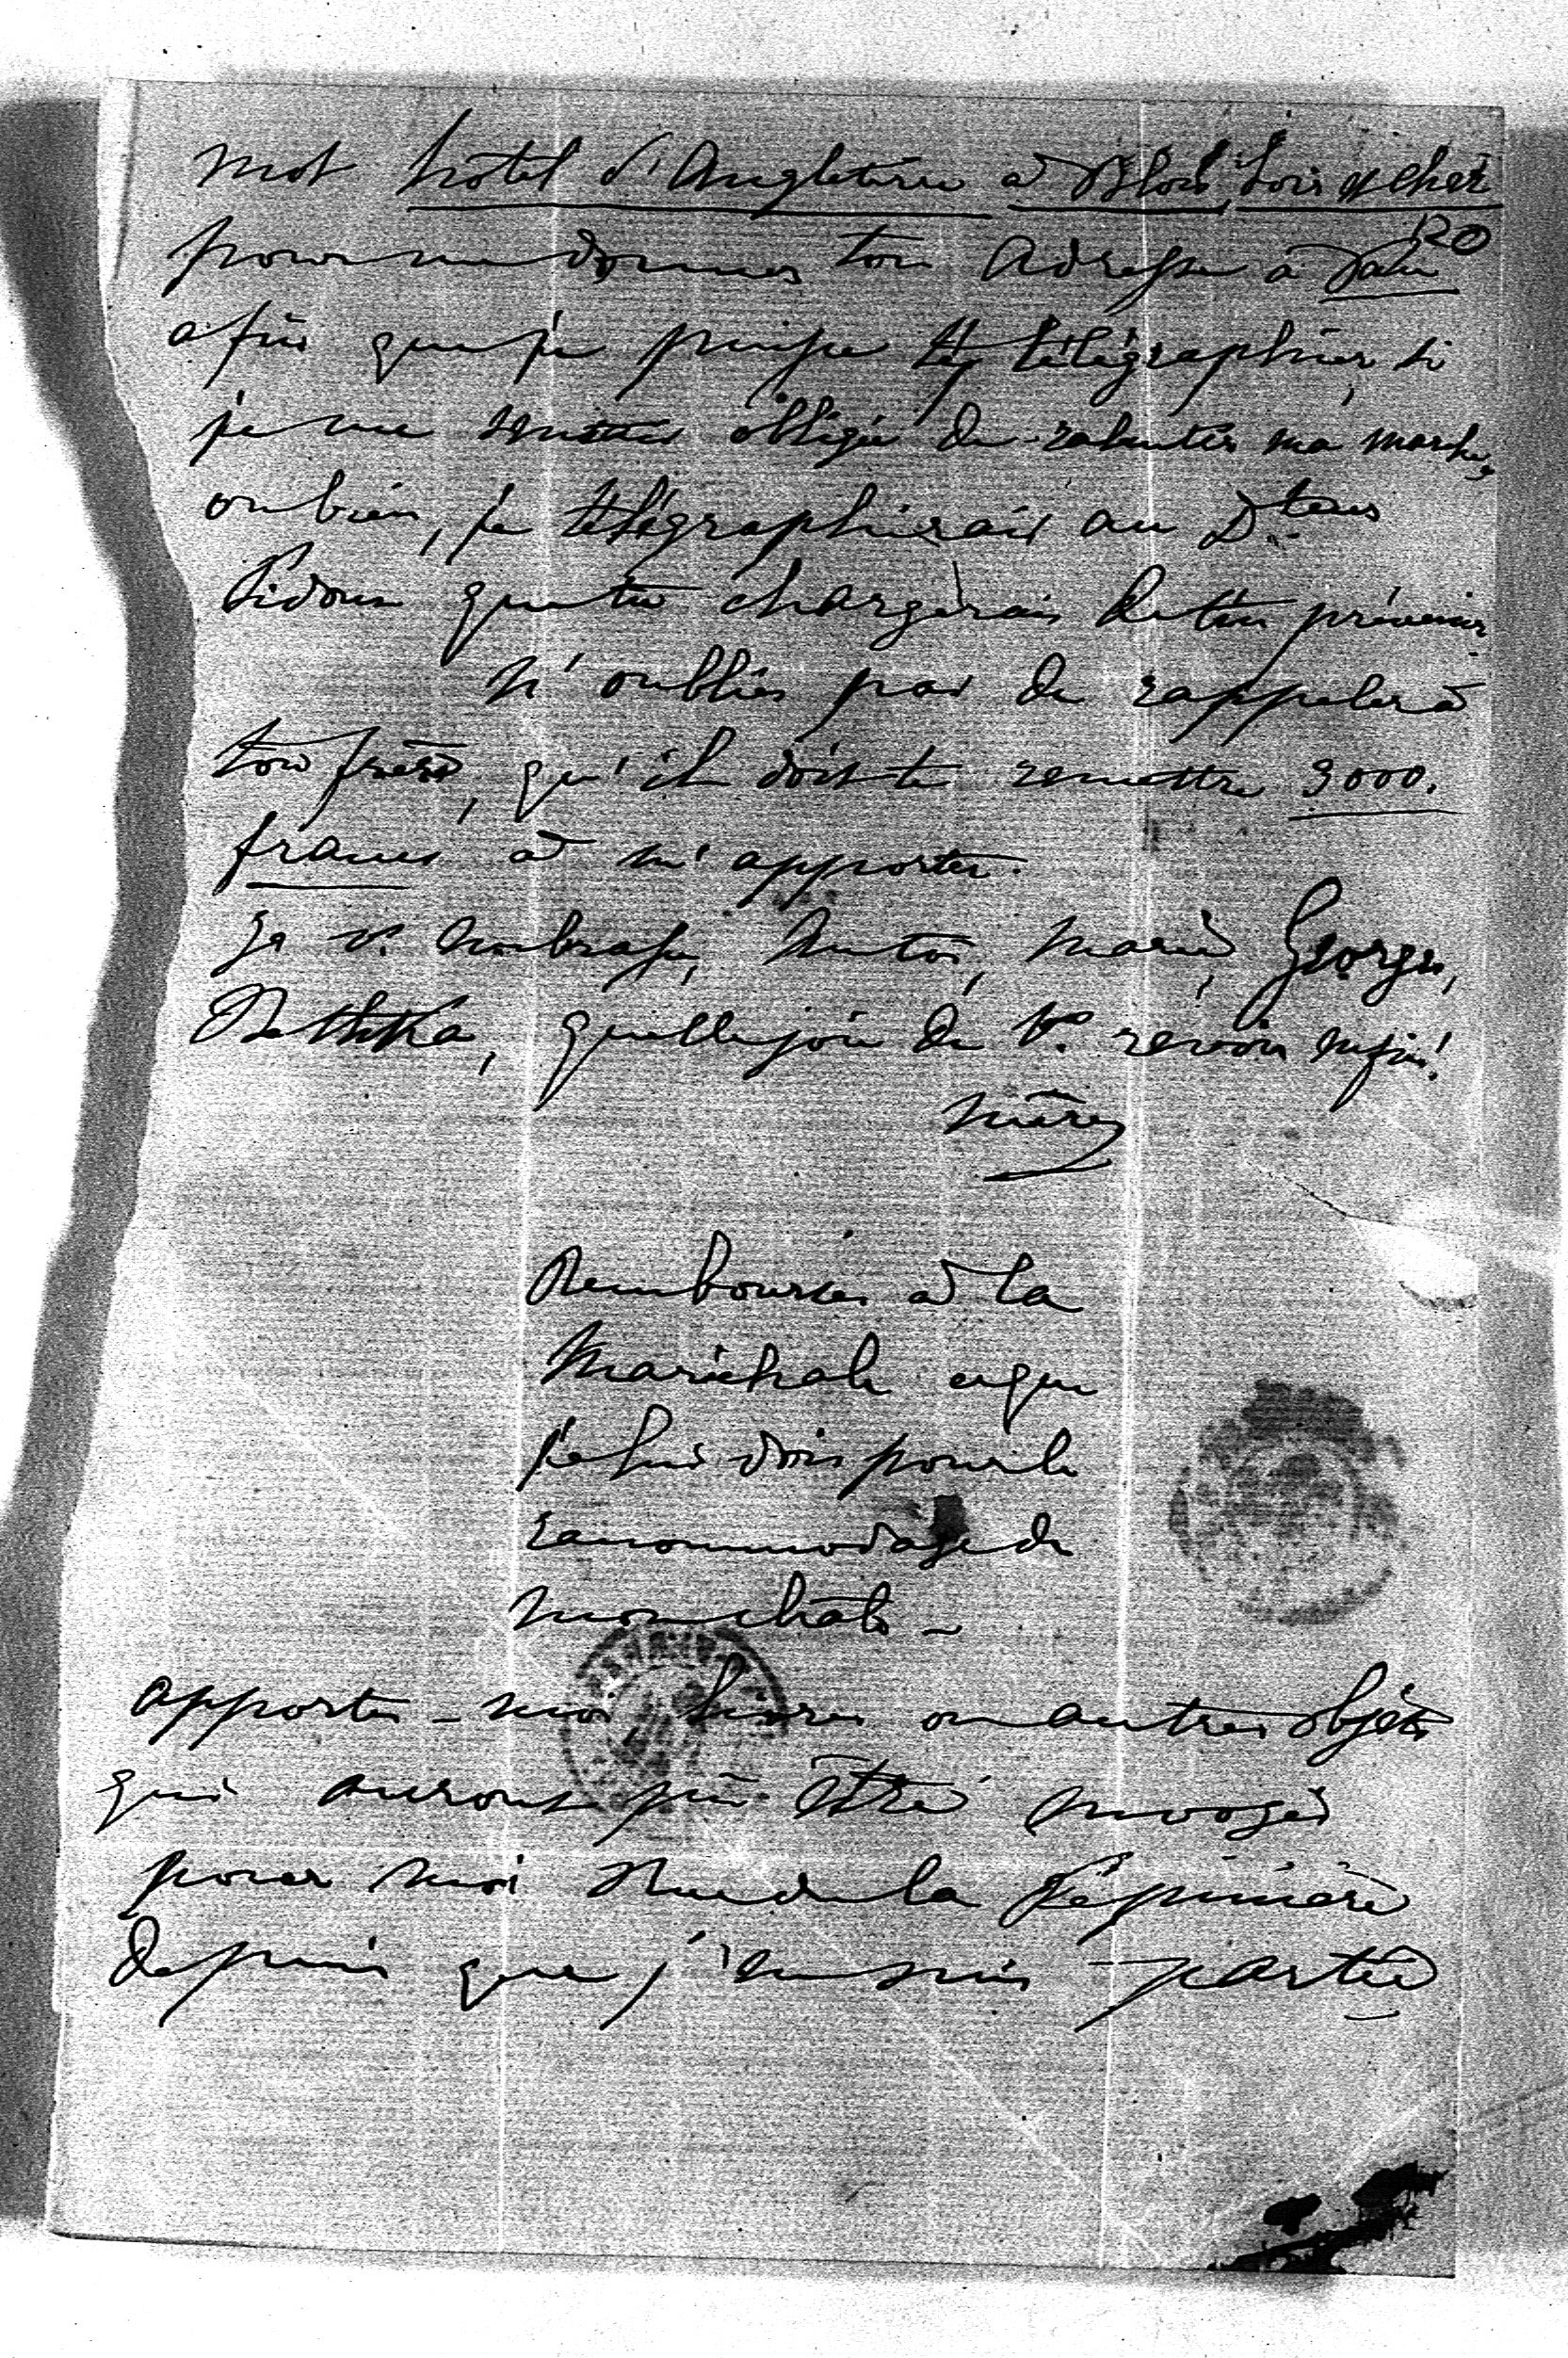 mot hôtel d'Angleterre à Blois Loir & Cher
20
pour me donner ton adresse à Pau
afin que je puisse télégraphier, si
je me sentais obligée de ralentir ma marche,
ou bien, je télégraphierais au Dteur
Pidoux que tu chargerais de t'en prévenir.
N'oublies pas de rappeler à
ton frère, qu'il doit te remettre 3000.
francs à m'apporter.
Je vs embrasse, Anton, Marie, Georges,
quelle joie de vs revoir enfin!
Mère
Rembourser à la
Maréchale ce que
je lui dois pour le
raccommodage de
mon châle -
apportes-moi livres ou autres objets
qui auront pu être envoyés
pour moi Rue de la Pépinière
depuis que j'en suis partie